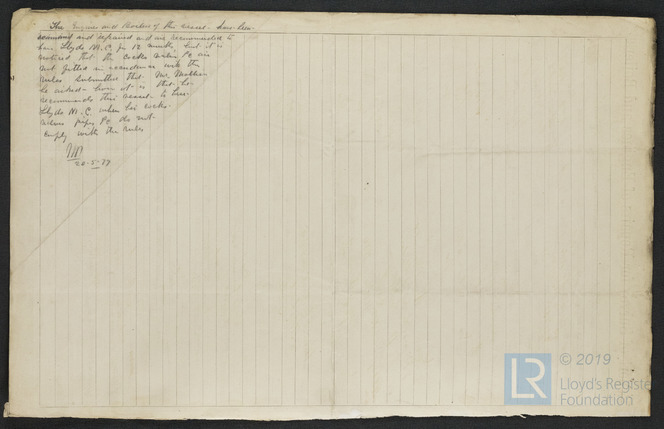 The Engines and Boilers of this vessel have been
examined and repaired and are recommended to
have Lloyds M.C. for 12 months, but it is
noticed that the cocks valves &c are
not fitted in accordance with the
rules Submitted that Mr.
be asked how it is that he
recommends this vessel to have
Lloyds M.C. when her cocks
valves pipes &c do not
comply with the rules
20-5-79
LR
© 2019
Lloyd's Register
Foundation